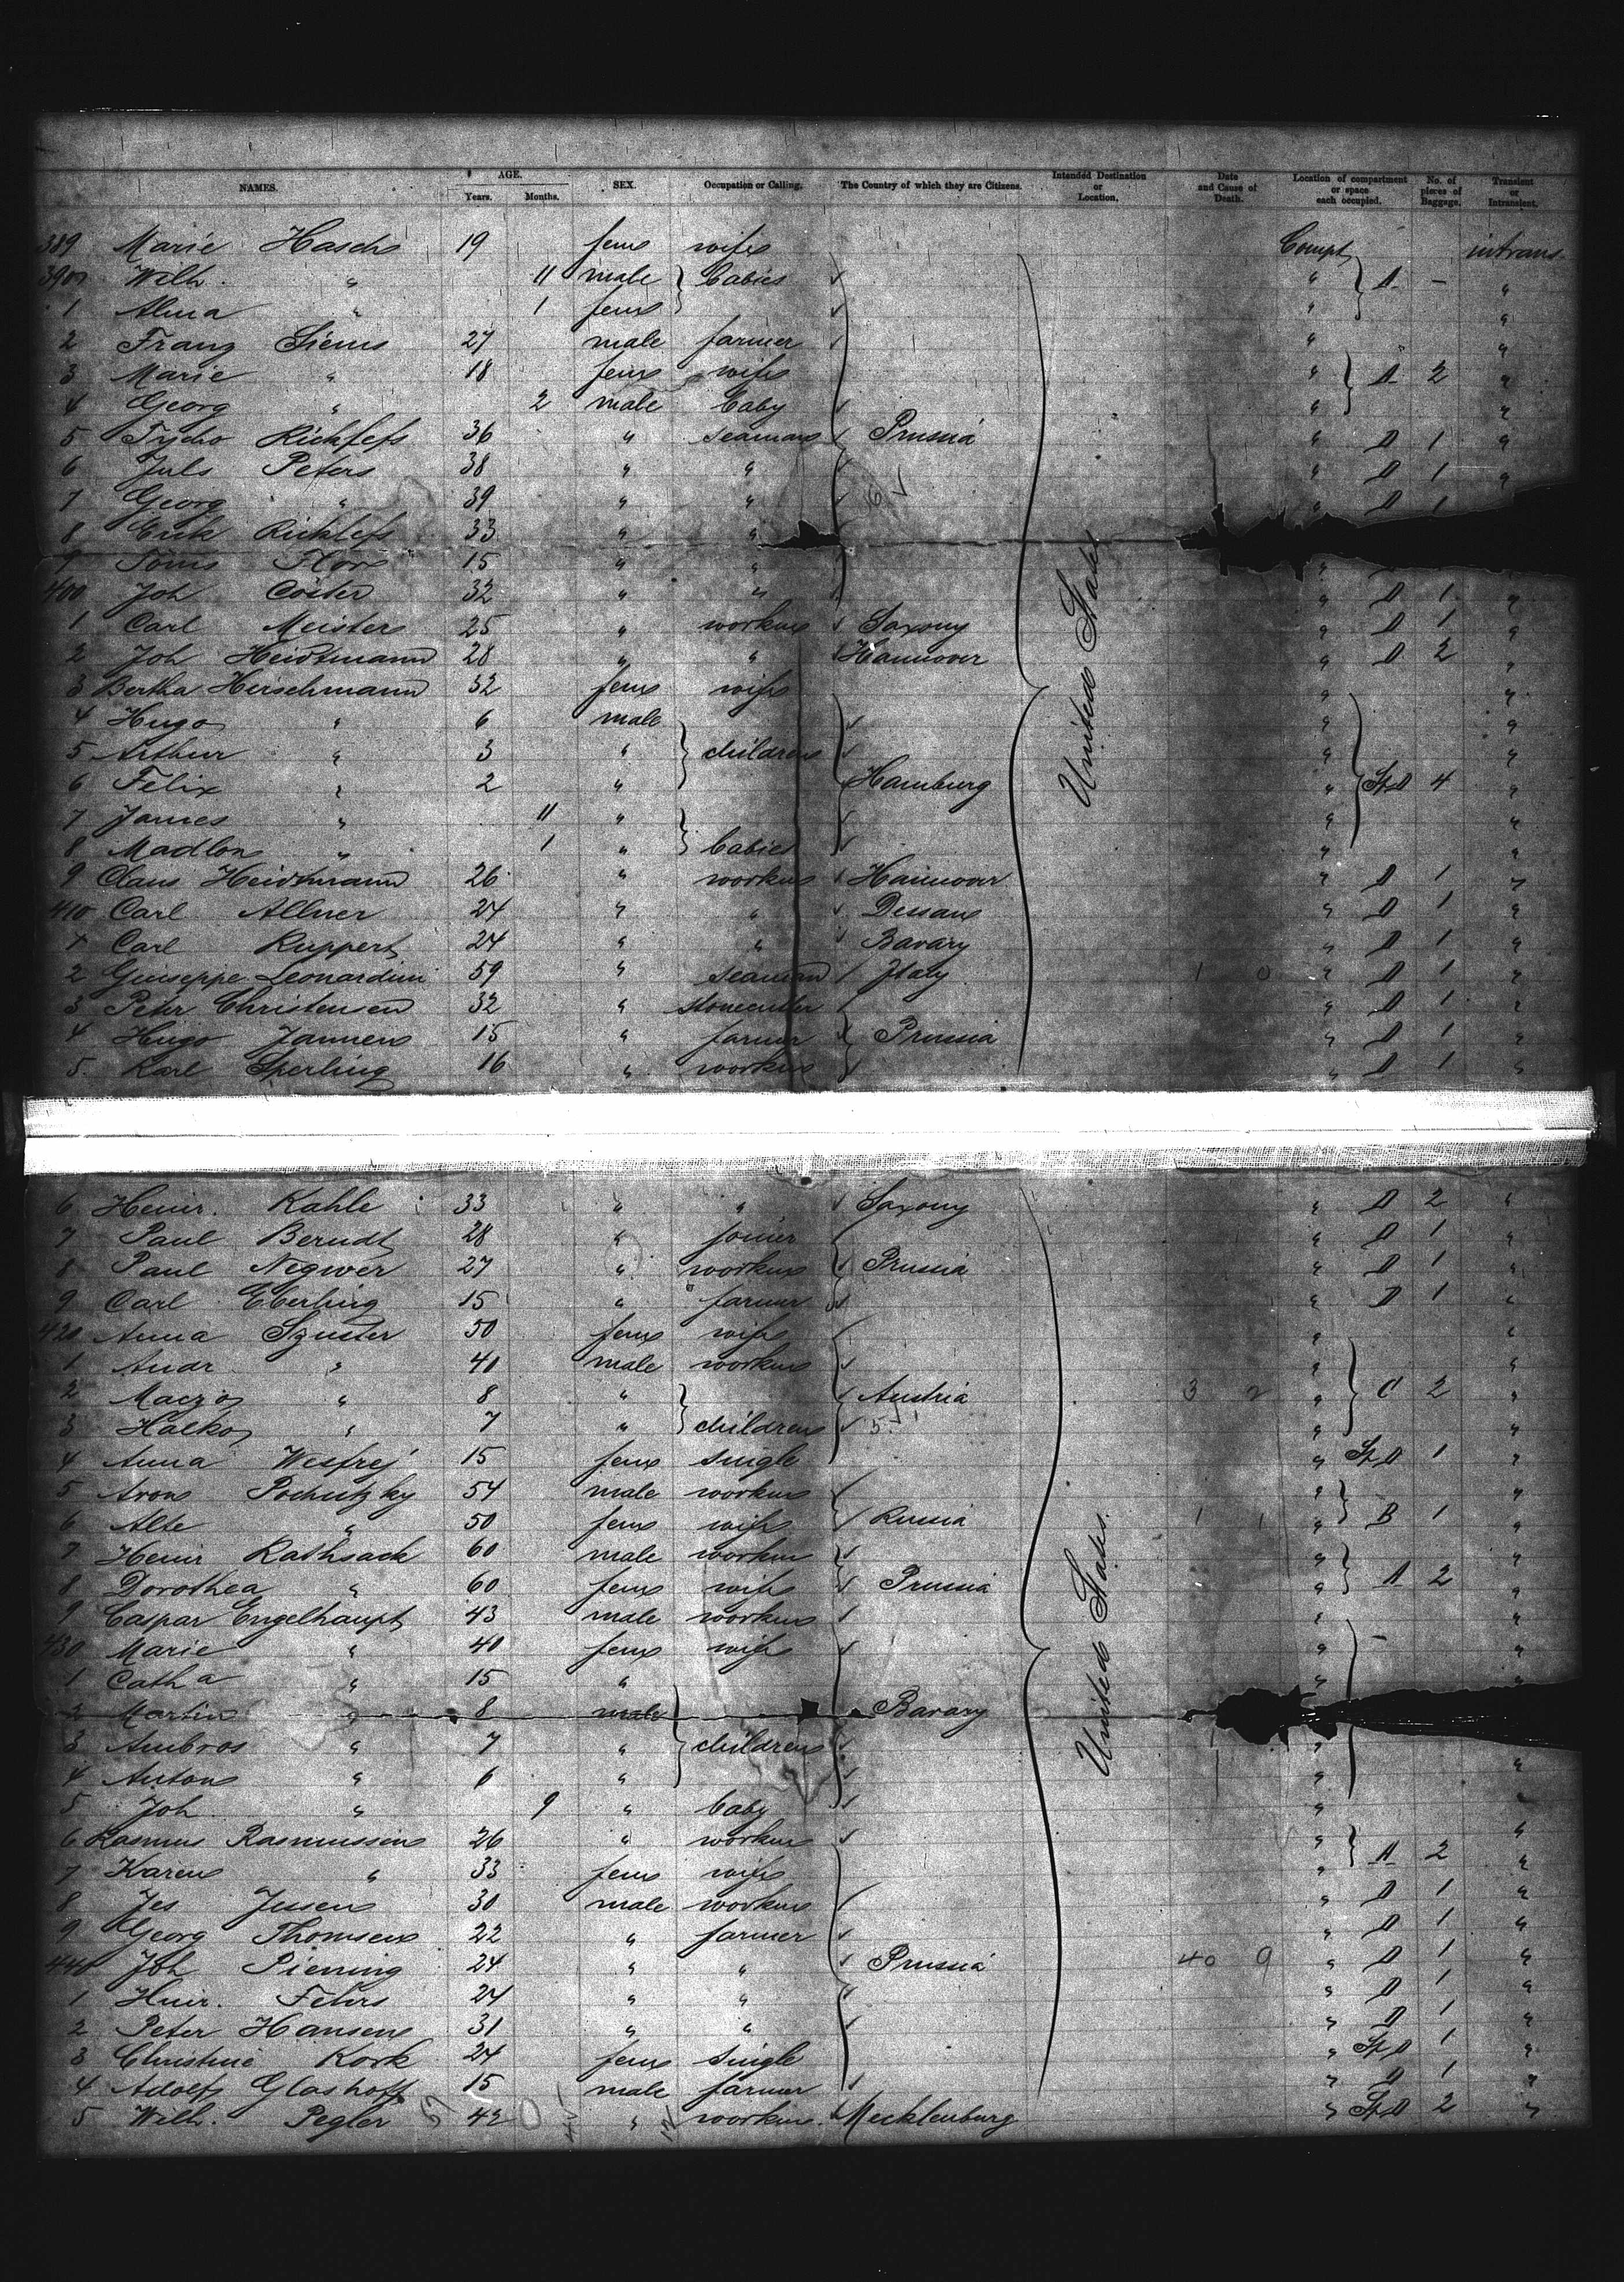 NAMES. AGE. Years. Months. SEX. Occupation or Calling. The Country of which they are Citizens. Intended Destination or Location. Date and Cause of Death. Location of compartment or space each occupied. No. of pieces of Baggage. Transient or Intransient.
389 Marie Hasch 19 fem wife Compt intrans
390 Wilh. " 11 male babies " A - "
1 Alma " 1 fem " "
2 Franz Siems 27 male farmer " "
3 Marie " 18 fem wife " A 2 "
4 Georg " 2 male baby " "
5 Tycho Richlefs 36 " seaman Prussia " D 1 "
6 Juls Peters 38 " " " D 1 "
7 Georg " 39 " " " D 1
8 Erik Richlefs 33 " "
9 Tönis Flor 15 " "
400 Joh Cöster 32 " " " D 1 "
1 Carl Meister 25 " workm Saxony " D 1 "
2 Joh Heidtmann 28 " " Hannover " D 2 "
3 Bertha Hirschmann 32 fem wife " "
4 Hugo " 6 male " "
5 Arthur " 3 " children " "
6 Felix " 2 " Hamburg " St D 4 "
7 James " 11 " " "
8 Madlon " 1 " babies " "
9 Claus Heidtmann 26 " workm Hannover " D 1 "
410 Carl Allner 24 " " Dessau " D 1 "
1 Carl Ruppert 24 " " Bavary " D 1 "
2 Guiseppe Leonardini 59 " seaman Italy 1 0 " D 1 "
3 Peter Christensen 32 " stonecutter " D 1 "
4 Hugo Jannen 15 " farmer Prussia " D 1 "
5. Karl Sperling 16 " workm " D 1 "
United States
6 Heinr. Kahle 33 " " Saxony " D 2 "
7 Paul Berndt 28 " joiner " D 1 "
8 Paul Negwer 27 " workm Prussia " D 1 "
9 Carl Eberling 15 " farmer " D 1 "
420 Anna Szuster 50 fem wife " "
1 Andr " 41 male workm " "
2 " 8 " Austria 3 2 " C 2 "
3 Halko " 7 " children 5 " "
4 Anna Wesfrej 15 fem single " St D 1 "
5 Aron Pochutzky 54 male workm " "
6 Alte " 50 fem wife Russia 1 1 " B 1 "
7 Heinr Rathsack 60 male workm " "
8 Dorothea " 60 fem wife Prussia " A 2 "
9 Caspar Engelhaupt 43 male workm " "
430 Marie " 40 fem wife " - "
1 Catha " 15 " " "
2 Martin " 8 male Bavary
3 Ambros " 7 " children "
4 Anton " 6 " " "
5 Joh " 9 " baby "
6 Rasmus Rasmussen 26 " workm " "
7 Karen " 33 fem wife " A 2 "
8 Jes Jessen 30 male workm " D 1 "
9 Georg Thomsen 22 " farmer " D 1 "
440 Joh Piening 24 " " Prussia 40 9 " D 1 "
1 Heinr. Fehrs 24 " " " D 1 "
2 Peter Hansen 31 " " " D 1 "
3 Christine Kork 24 fem single " St D 1 "
4 Adolf Glashoff 15 male farmer " D 1 "
5 Wilh. Pegler 42 " workm Mecklenburg " St D 2 "
United States.